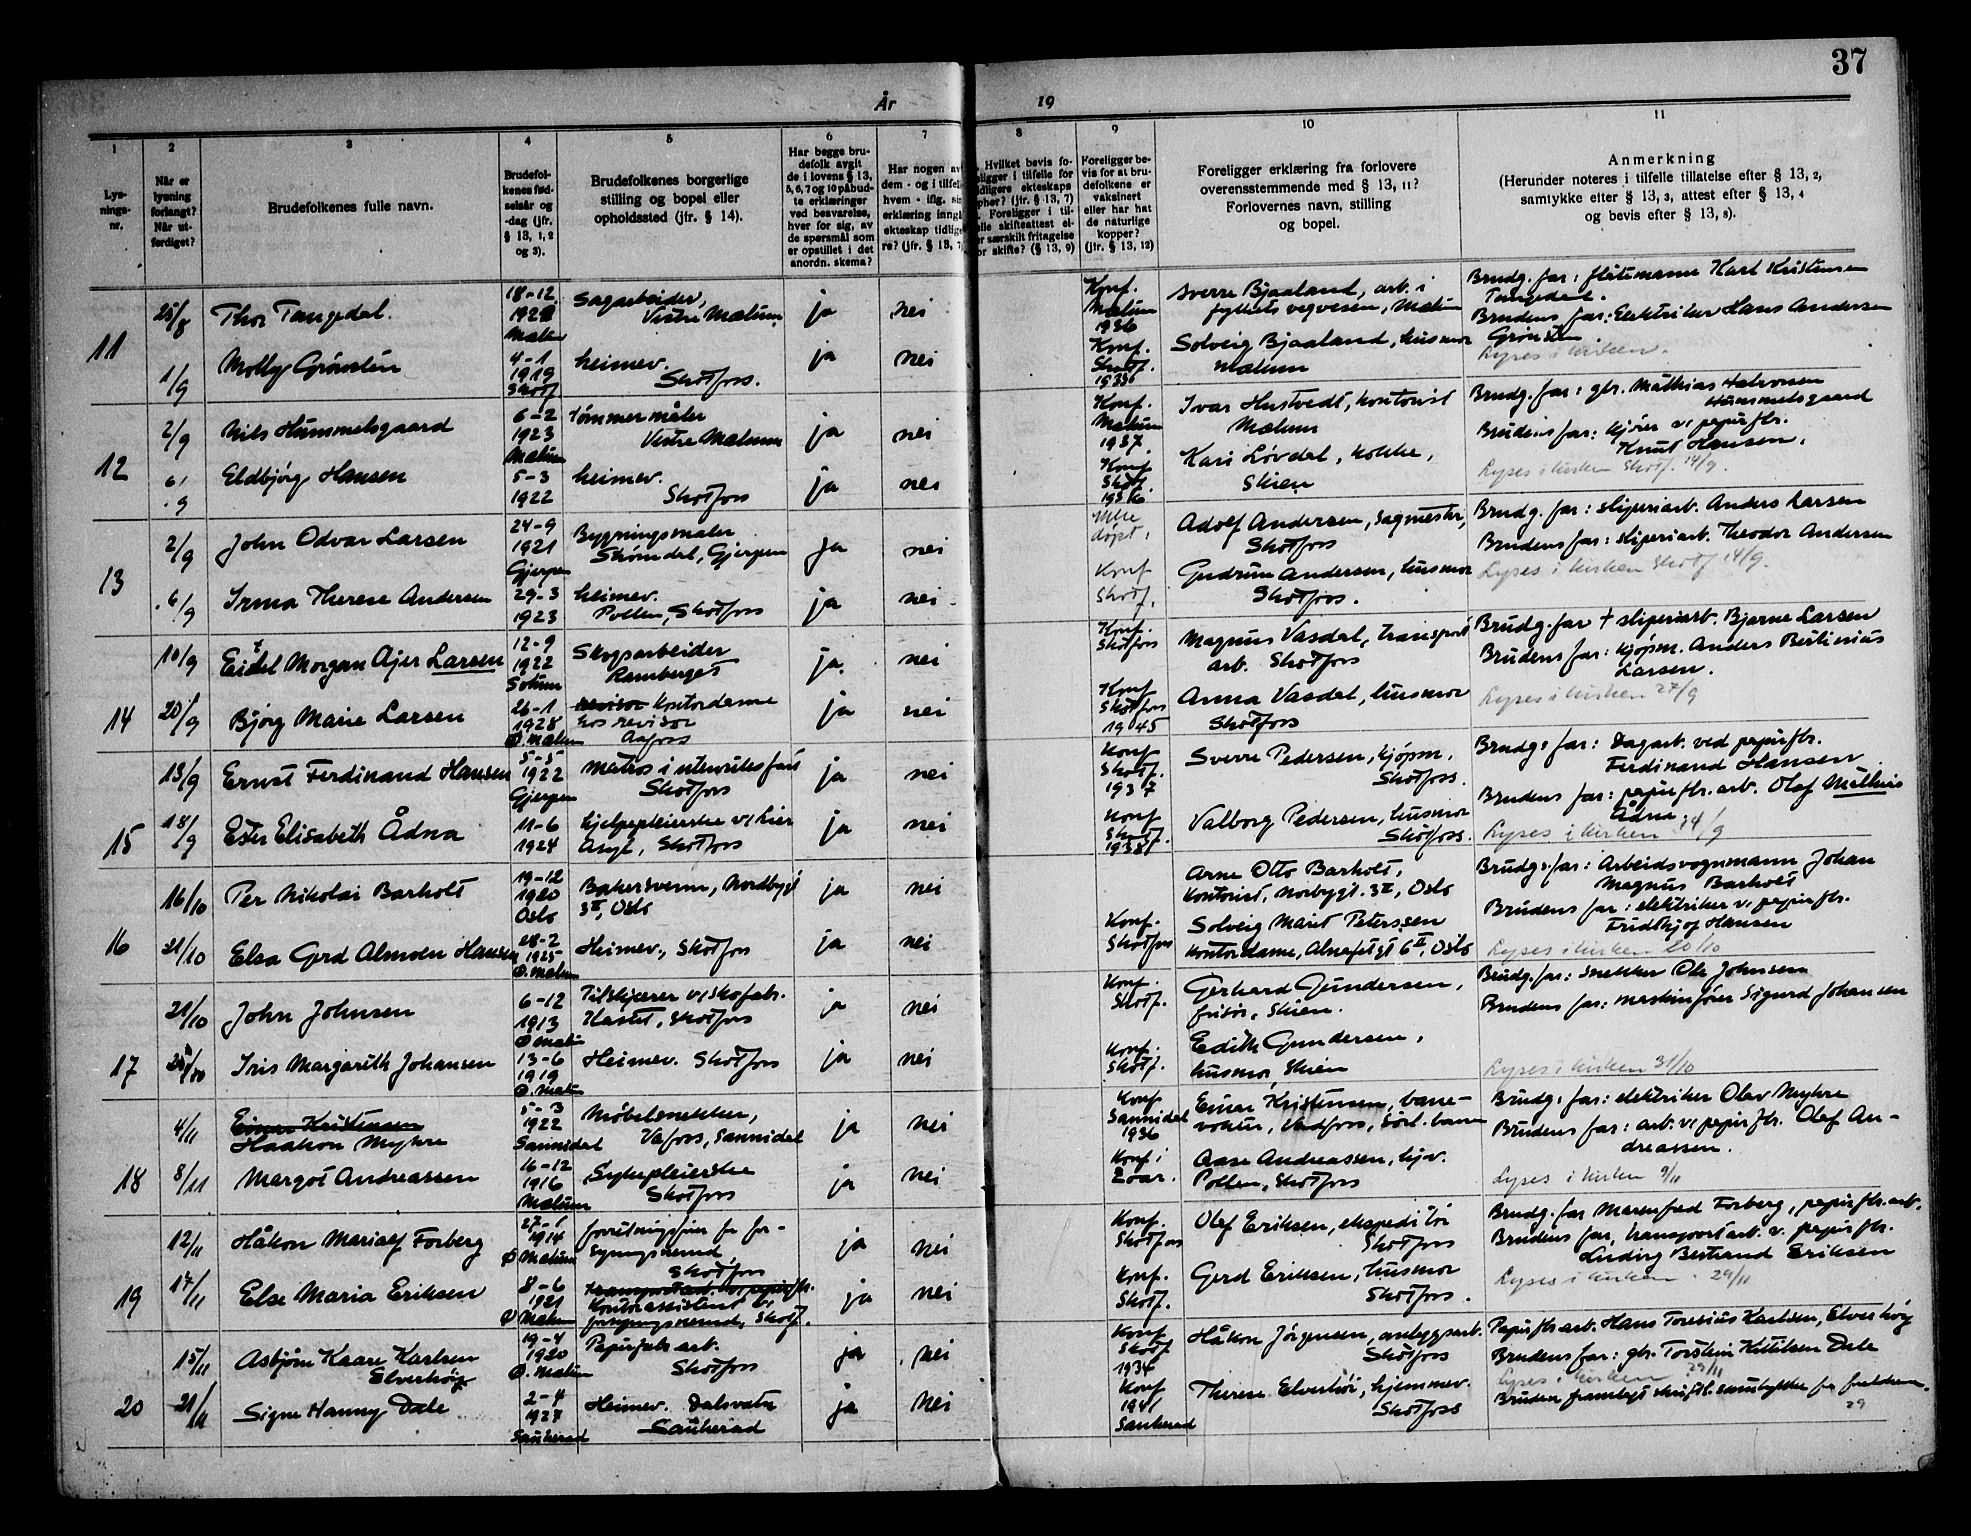 37
År 19
1 2 3 4 5 6 7 8 9 10 11
Lys-
nings-
nr.
Når er
lysning
forlangt?
Når ut-
ferdiget?
Brudefolkenes fulle navn.
Brudefol-
kenes fød-
selsår og
-dag (jfr.
§ 13, 1, 2
og 3).
Brudefolkenes borgerlige
stilling og bopel eller
opholdssted (jfr. § 14).
Har begge bru-
defolk avgit
de i lovens § 13,
5, 6, 7 og 10 påbud-
te erklæringer
ved besvarelse,
hver for sig, av
de spørsmål som
er opstillet i det
anordn. skema?
Har nogen av
dem - og i tilfelle
hvem - iflg. sin
erklæring inngått
ekteskap tidlige-
re? (jfr. § 13, 7)
Hvilket bevis fo-
religger i tilfelle for
tidligere ekteskaps
opher? (jfr. § 13, 7)
Foreligger i til-
felle skifteattest el-
ler særskilt fritagelse
for skifte? (§ 13, 9)
Foreligger be-
vis for at bru-
defolkene er
vaksinert
eller har hat
de naturlige
kopper?
(jfr. § 13, 12)
Foreligger erklæring fra forlovere
overensstemmende med § 13, 11?
Forlovernes navn, stilling
og bopel.
Anmerkning
(Herunder noteres i tilfelle tillatelse efter § 13, 2,
samtykke efter § 13, 3, attest efter § 13, 4
og bevis efter § 13, 8).
11
25/8 Thor Tangedal. 18-12 Sagarbeider, ja nei Konf. Sverre Bjaaland, arb. i Brudg. far: fløtemann Karl Kristensen
Vestre Mælum Mælum fylkets vegvesen, Mælum Tangedal.
1936 Brudens far: Elektriker Hans Andersen
1/9 Molly Grønsten 4-1 heimev. ja nei Konf. Solveig Bjaaland, husmor Grønsten.
1919 Skotfoss. Skotf. Mælum Lyses i kirken.
Skotf 1933
12
2/9 Nils Hummelsgaard 6-2 Tømmermåler ja nei Konf. Ivar Hustvedt, kontorist Brudg. far: gbr. Mathias Halvorsen
1923 Vestre Mælum Mælum Mælum Hummelsgaard
Mælum 1937 Brudens far: kjører v/ papirfbr.
6/9 Eldbjørg Hansen 5-3 heimev. ja nei Konf Kari Løvdal, kokke, Knut Hansen.
1922 Skotfoss Skotf. Skien Lyses i kirken Skotf. 14/9.
13
2/9 John Odvar Larsen 24-9 Bygningsmaler ja nei Ikke Adolf Andersen, sagmester, Brudg. far: sliperiarb. Anders Larsen
1921 Strømdal, Gjerpen døpt. Skotfoss Brudens far: sliperiarb. Theodor Andersen
Gjerpen
6/9 Irma Therese Andersen 29-3 heimev. ja nei Konf Gudrun Andersen, husmor Lyses i kirken Skotf 14/9.
1923 Pollen, Skotfoss Skotf. Skotfoss.
14
10/9 Eidel Morgan Ajer Larsen 12-9 Skogsarbeider ja. nei Konf. Magnus Vasdal, transport Brudg. far † sliperiarb. Bjarne Larsen
1922 Ramberget Skotfoss arb. Skotfoss Brudens far: kjøpm. Anders Bertinius
Solum Larsen.
20/9 Bjørg Marie Larsen 26-1 revisor kontordame ja nei Konf Anna Vasdal, husmor Lyses i kirken 27/9
1928 hos revisor Skotfoss Skotfoss
Ø. Mælum Aafoss 1945
15
13/9 Ernst Ferdinand Hansen 5-5 Matros i utenriksfart ja nei Konf Sverre Pedersen, kjøpm. Brudg. far: Dagarb. ved papirfbr.
1922 Skotfoss Skotf. Skotfoss. Ferdinand Hansen.
Gjerpen 1937 Brudens far: papirfbr. arb. Olaf Mathias
18/9 Ester Elisabeth Ådna 11-6 hjelpepleierske v/ Lier ja nei Konf Valborg Pedersen, husmor Ådna
1924 Asyl, Skotfoss Skotf. Skotfoss. Lyses i kirken 14/9
16
16/10 Per Nikolai Barholt 19-12 Bakersvenn, Nordbygt ja nei Arne Otto Barholt, Brudg. far: Arbeidsvognmann Johan
1920 3 II, Oslo kontorist, Norbygt. 3 II, Oslo Magnus Barholt
Oslo Brudens far: elektriker v. papirfbr.
21/10 Elsa Gerd Almoen Hansen 28-2 Heimev., Skotfoss ja nei Konf. Solveig Marit Peterssen Fridthjof Hansen
1925 Skotfoss Kontordame, Alnafetgt 6 II, Oslo Lyses i kirken 20/10
Ø. Mælum
17
21/10 John Johnsen 6-12 Tilskjærer v/ skofabr. ja nei Konf. Gerhard Gundersen, Brudg. far: snekker Ole Johnsen
1913 Hastet, Skotfoss Skotf. frisør, Skien. Brudens far: maskinfører Sigurd Johansen
Ø Mælum
Iris Margarith Johansen 13-6 Heimev. Skotfoss ja nei Konf. Edith Gundersen,
1919 Skotf. husmor, Skien Lyses i kirken 31/10
Ø. Mælum
18
4/11 Einar Kristensen 5-3 Møbelsnekker, ja nei Konf Einar Kristensen, bane- Brudg. far: elektriker Olav Myhre
Haakon Myhre 1922 Vafoss, Sannidal Sannidal vokter, Vadfoss, Sørl. banen Brudens far: arb. v/ papirfbr. Olef An-
Sannidal 1936 dreassen.
8/11 Margot Andreassen 16-12 Sykepleierske ja nei Konf i Aase Andreassen, hjv. Lyses i kirken 9/11
1916 Skotfoss Zoar. Pollen, Skotfoss
Mælum
19
12/11 Håkon Marialf Forberg 27-1 forretningsfører for for- ja nei Konf. Olef Eriksen, ekspeditør Brudg. far Marenfred Forberg, papirfbr. arb.
1914 syningsnemnd, Skotfoss Skotfoss Brudens far, transportarb. v. papirfbr.
Ø Mælum Skotfoss Ludvig Bertrand Eriksen
17/11 Else Maria Eriksen 8-6 transportarb. v/ papirfbr. ja nei Konf. Gerd Eriksen, husmor Lyses i kirken 29/11
1921 Kontorassistent v. Skotf. Skotfoss.
Ø Mælum forsyningsnemnd, Skotf.
20
15/11 Asbjørn Kaare Karlsen 19-4 Papirfabr. arb. ja nei Konf Håkon Jørgensen, anleggsarb. Papirfbr. arb. Hans Toresius Karlsen, Elverhøy
Elverhøy 1920 Skotfoss Skotf Skotfoss Brudens far: gbr. Torstein Kittilsen Dale
Ø. Mælum 1934 Lyses i kirken 29/11
21/11 Signe Hanny Dale 2-4 Heimev. Dalsvatn ja nei Konf Therese Elverhøi, hjemmev. Bruden framlagt skriftl. samtykke fra foreldrene.
1927 Sauherad 1941 Skotfoss 29
Sauherad Sauherad